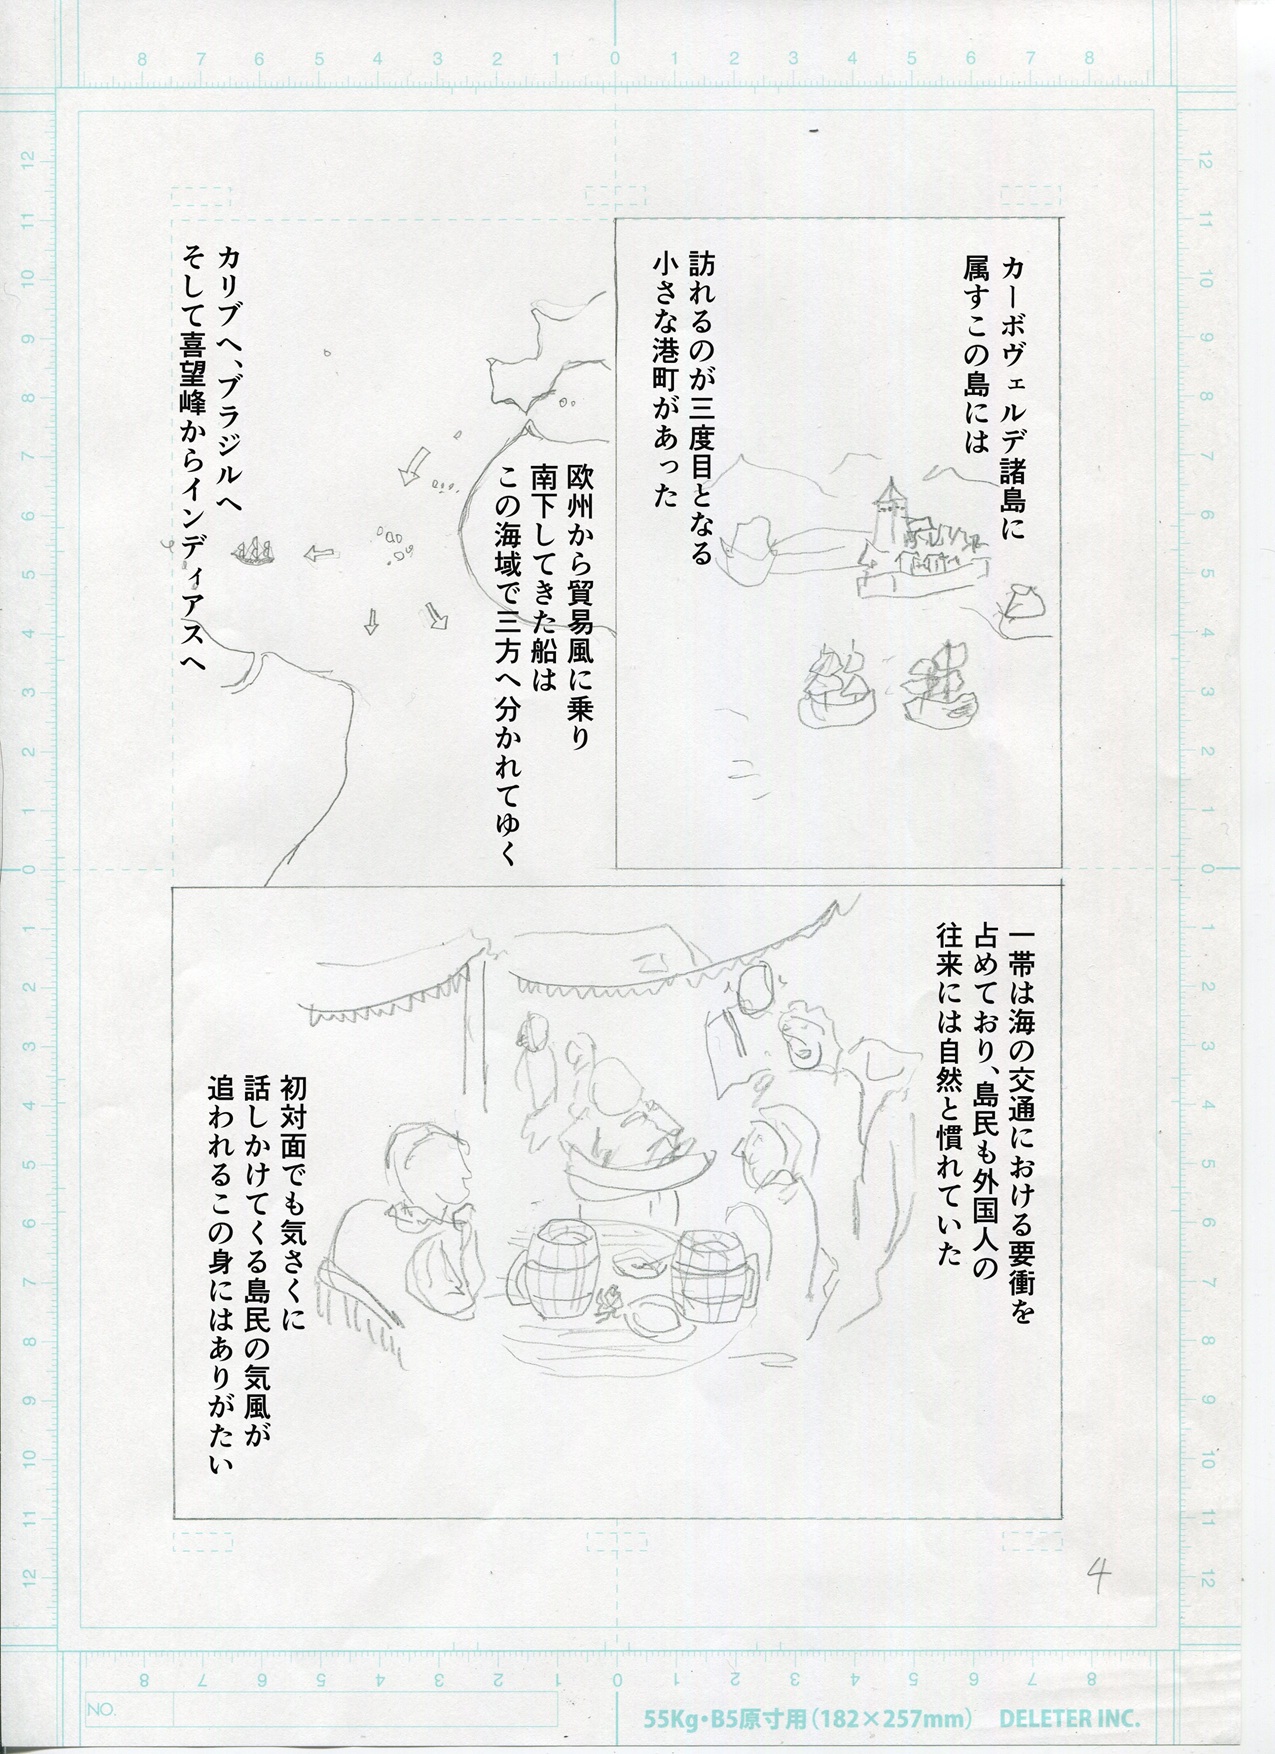 カーボヴェルデ諸島に
属すこの島には
訪れるのが三度目となる
小さな港町があった
欧州から貿易風に乗り
南下してきた船は
この海域で三方へ分かれてゆく
カリブへ、ブラジルへ
そして喜望峰からインディアスへ
一帯は海の交通における要衝を
占めており、島民も外国人の
往来には自然と慣れていた
初対面でも気さくに
話しかけてくる島民の気風が
追われるこの身にはありがたい
4
8 7 6 5 4 3 2 1 0 1 2 3 4 5 6 7 8
12
11
10
9
8
7
6
5
4
3
2
1
0
1
2
3
4
5
6
7
8
9
10
11
12
12
11
10
9
8
7
6
5
4
3
2
1
0
1
2
3
4
5
6
7
8
9
10
11
12
8 7 6 5 4 3 2 1 0 1 2 3 4 5 6 7 8
NO.
55Kg・B5原寸用（182×257mm） DELETER INC.